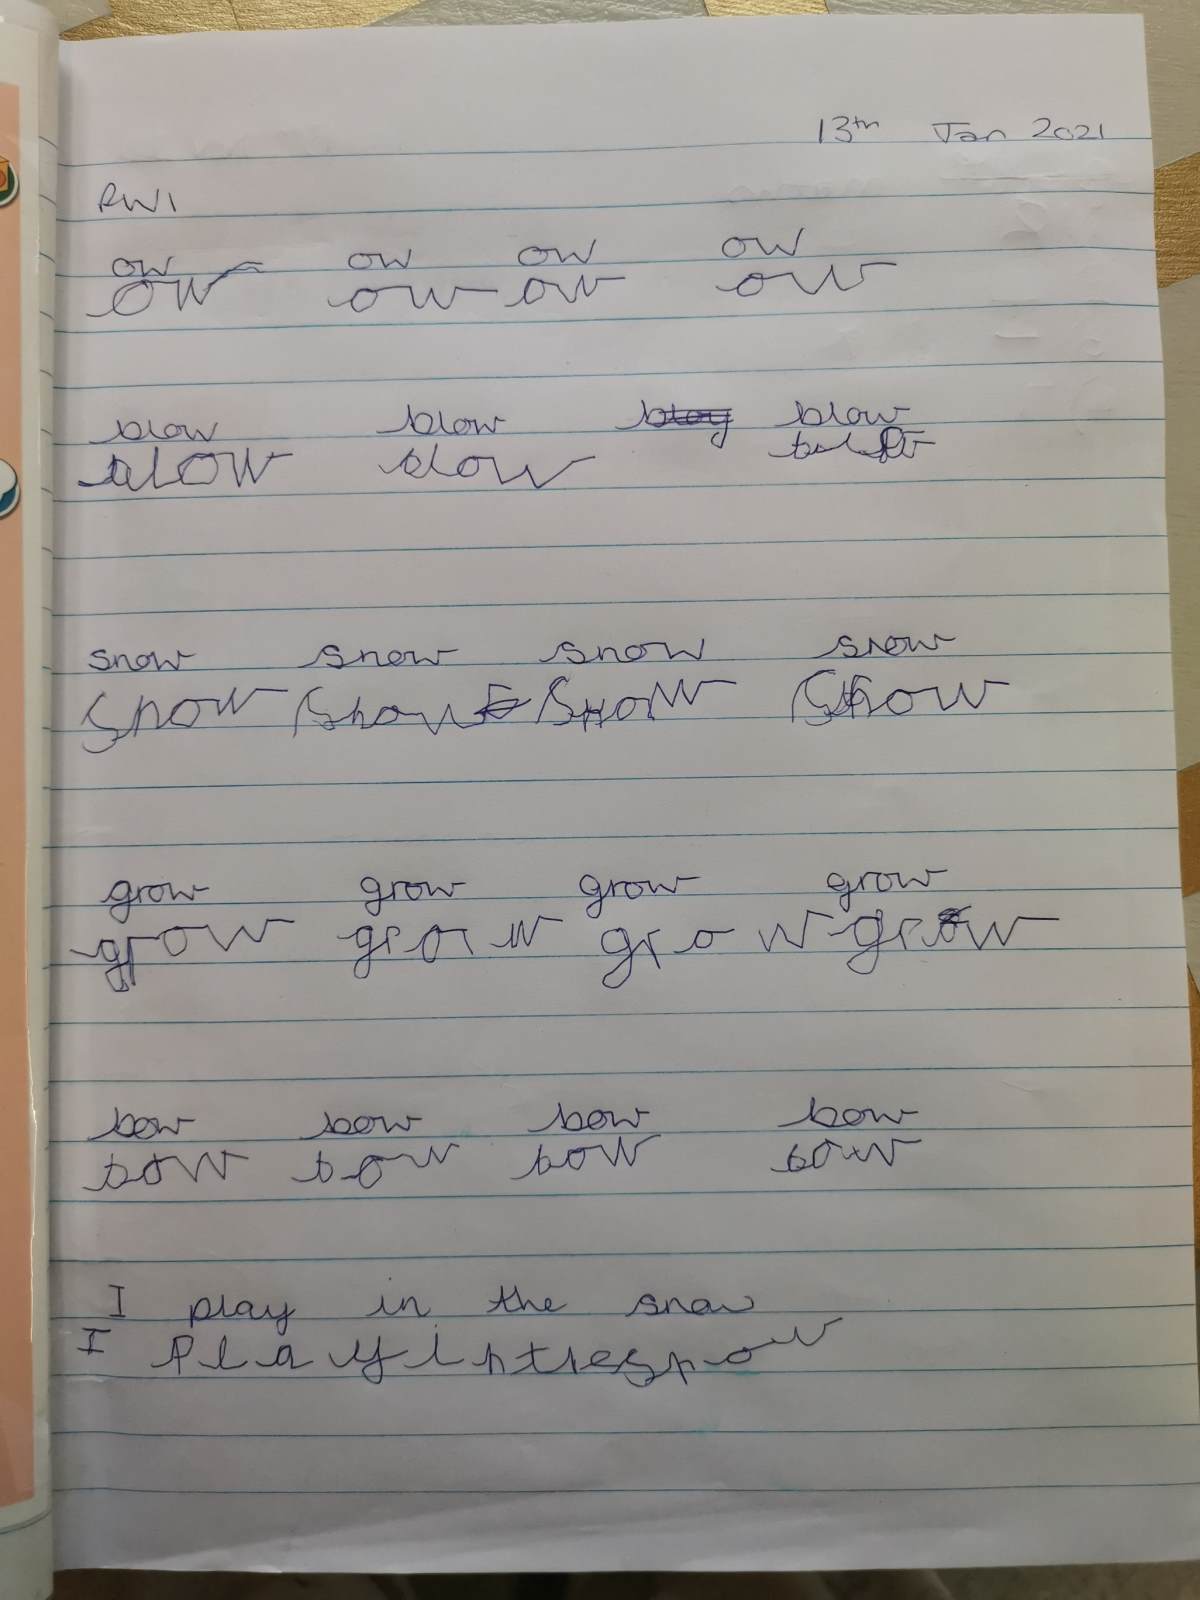 13th Jan 2021
RWI
ow ow ow ow
ow ow ow ow
blow blow blow
blow blow
snow snow snow snow
snow snow snow snow
grow grow grow grow
grow grow grow grow
bow bow bow bow
bow bow bow bow
I play in the snow
I play in the snow